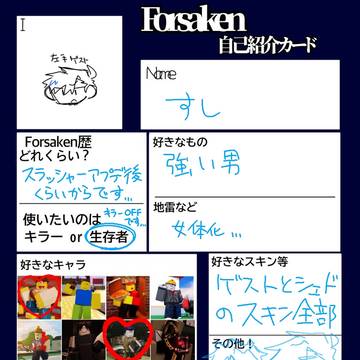 I
左手ゲスト
Forsaken
自己紹介カード
Name
すし
Forsaken歴
どれくらい?
スラッシャーアプデ後
くらいからです…
使いたいのは
キラーOFF
です…
キラー or 生存者
好きなもの
強い男
地雷など
女体化…
好きなキャラ
好きなスキン等
ゲストとシェド
のスキン全部
その他!